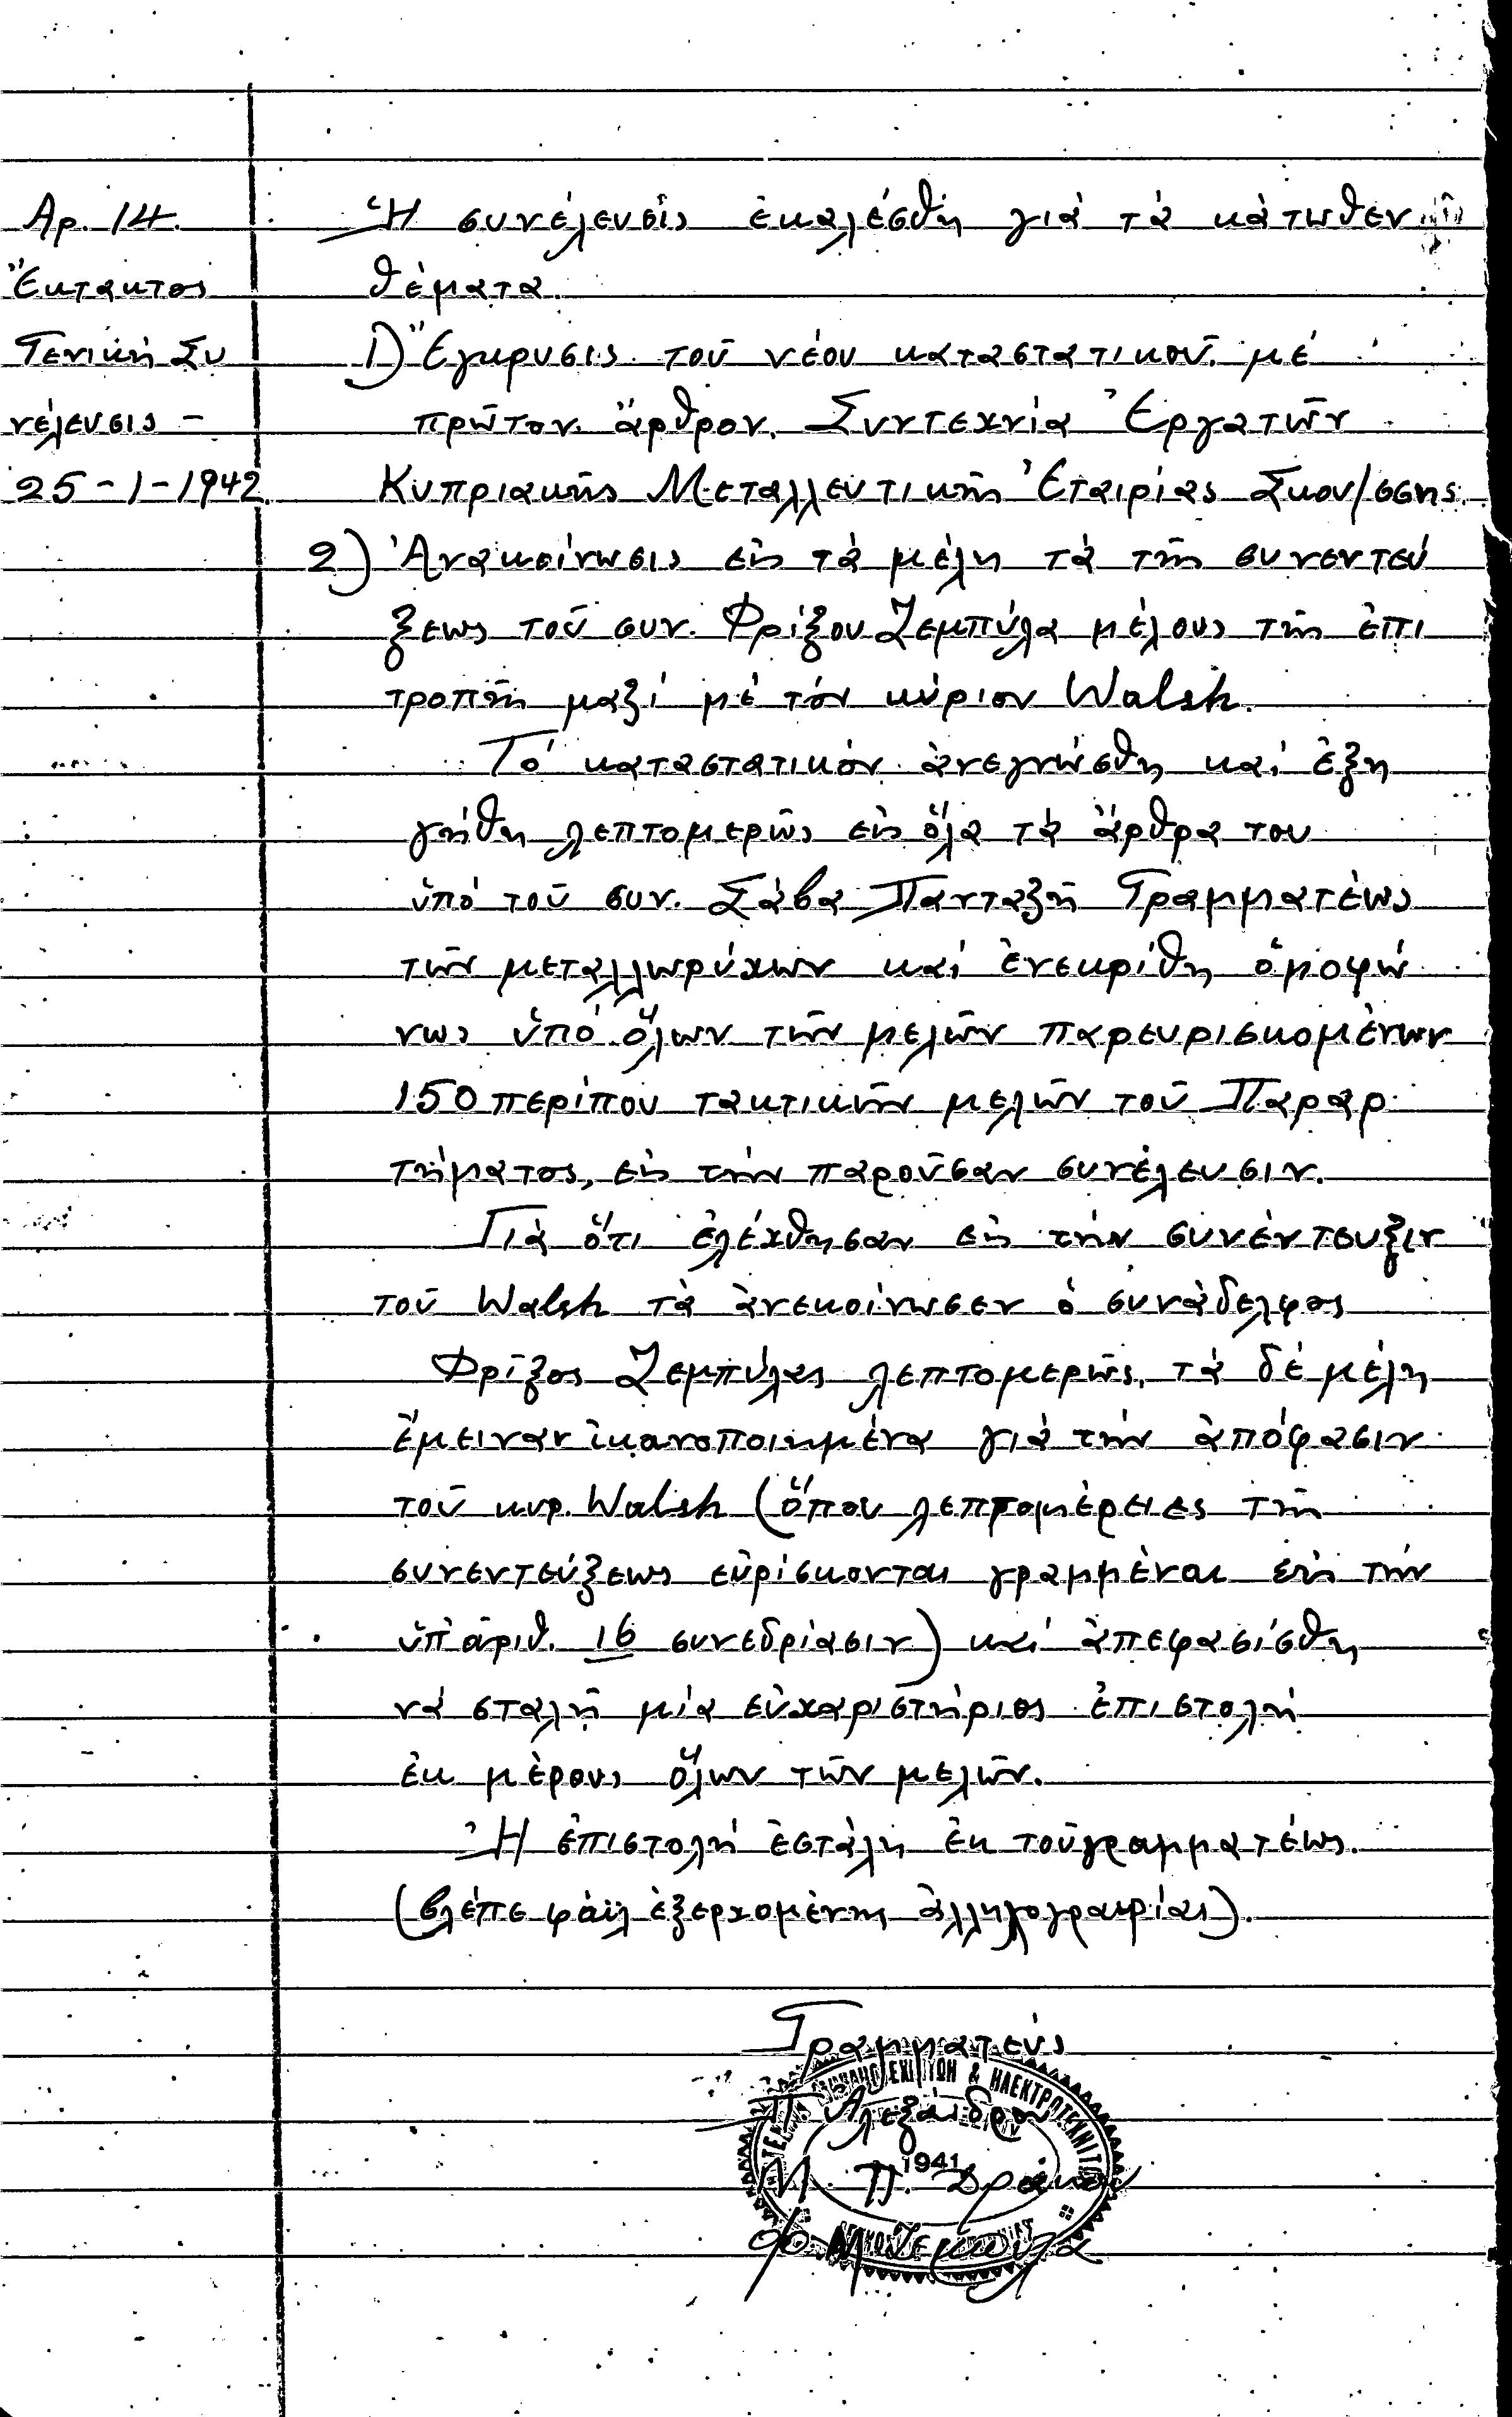 Αρ. 14.
Ἔκτακτος
Γενική Συ
νέλευσις –
25-1-1942
Ἡ συνέλευσις ἐκαλέσθη γιά τά κάτωθεν
θέματα.
1) Ἔγκρυσις τοῦ νέου καταστατικοῦ μέ
πρῶτον ἄρθρον. Συντεχνία Ἐργατῶν
Κυπριακῆς Μεταλλευτικῆς Ἑταιρίας Σκου/σσης.
2) Ἀνακοίνωσις εἰς τά μέλη τά τῆς συνεντεύ
ξεως τοῦ συν. Φρίξου Ζεμπύλα μέλους τῆς ἐπι
τροπῆς μαζί μέ τόν κύριον Walsh.
Τό καταστατικόν ἀνεγνώσθη καί ἐξη
γήθη λεπτομερῶς εἰς ὅλα τά ἄρθρα του
ὑπό τοῦ συν. Σάβα Πανταζῆ Γραμματέως
τῶν μεταλλωρύχων καί ἐνεκρίθη ὁμοφώ
νως ὑπό ὅλων τῶν μελῶν παρευρισκομένων
150 περίπου τακτικῶν μελῶν τοῦ Παραρ
τήματος, εἰς τήν παροῦσαν συνέλευσιν.
Γιά ὅτι ἐλέχθησαν εἰς τήν συνέντευξιν
τοῦ Walsh τά ἀνεκοίνωσεν ὁ συνάδελφος
Φρῖξος Ζεμπύλας λεπτομερῶς, τά δέ μέλη
ἔμειναν ἱκανοποιημένα γιά τήν ἀπόφασιν
τοῦ κυρ. Walsh (ὅπου λεπτομέρειες τῆς
συνεντεύξεως εὑρίσκονται γραμμέναι εἰς τήν
ὑπ' ἀριθ. 16 συνεδρίασιν) καί ἀπεφασίσθη
νά σταλῆ μία εὐχαριστήριος ἐπιστολή
ἐκ μέρους ὅλων τῶν μελῶν.
Ἡ ἐπιστολή ἐστάλη ἐκ τοῦ γραμματέως.
(βλέπε φάϊλ ἐξερχομένης ἀλληλογραφίας).
Γραμματεύς
& ΗΛΕΚΤΡΟΤΕΧΝΙΤΩΝ
Π. Αλεξάνδρου
1941
Μ. Π. Δράκου
Μ Ζεμπύλα